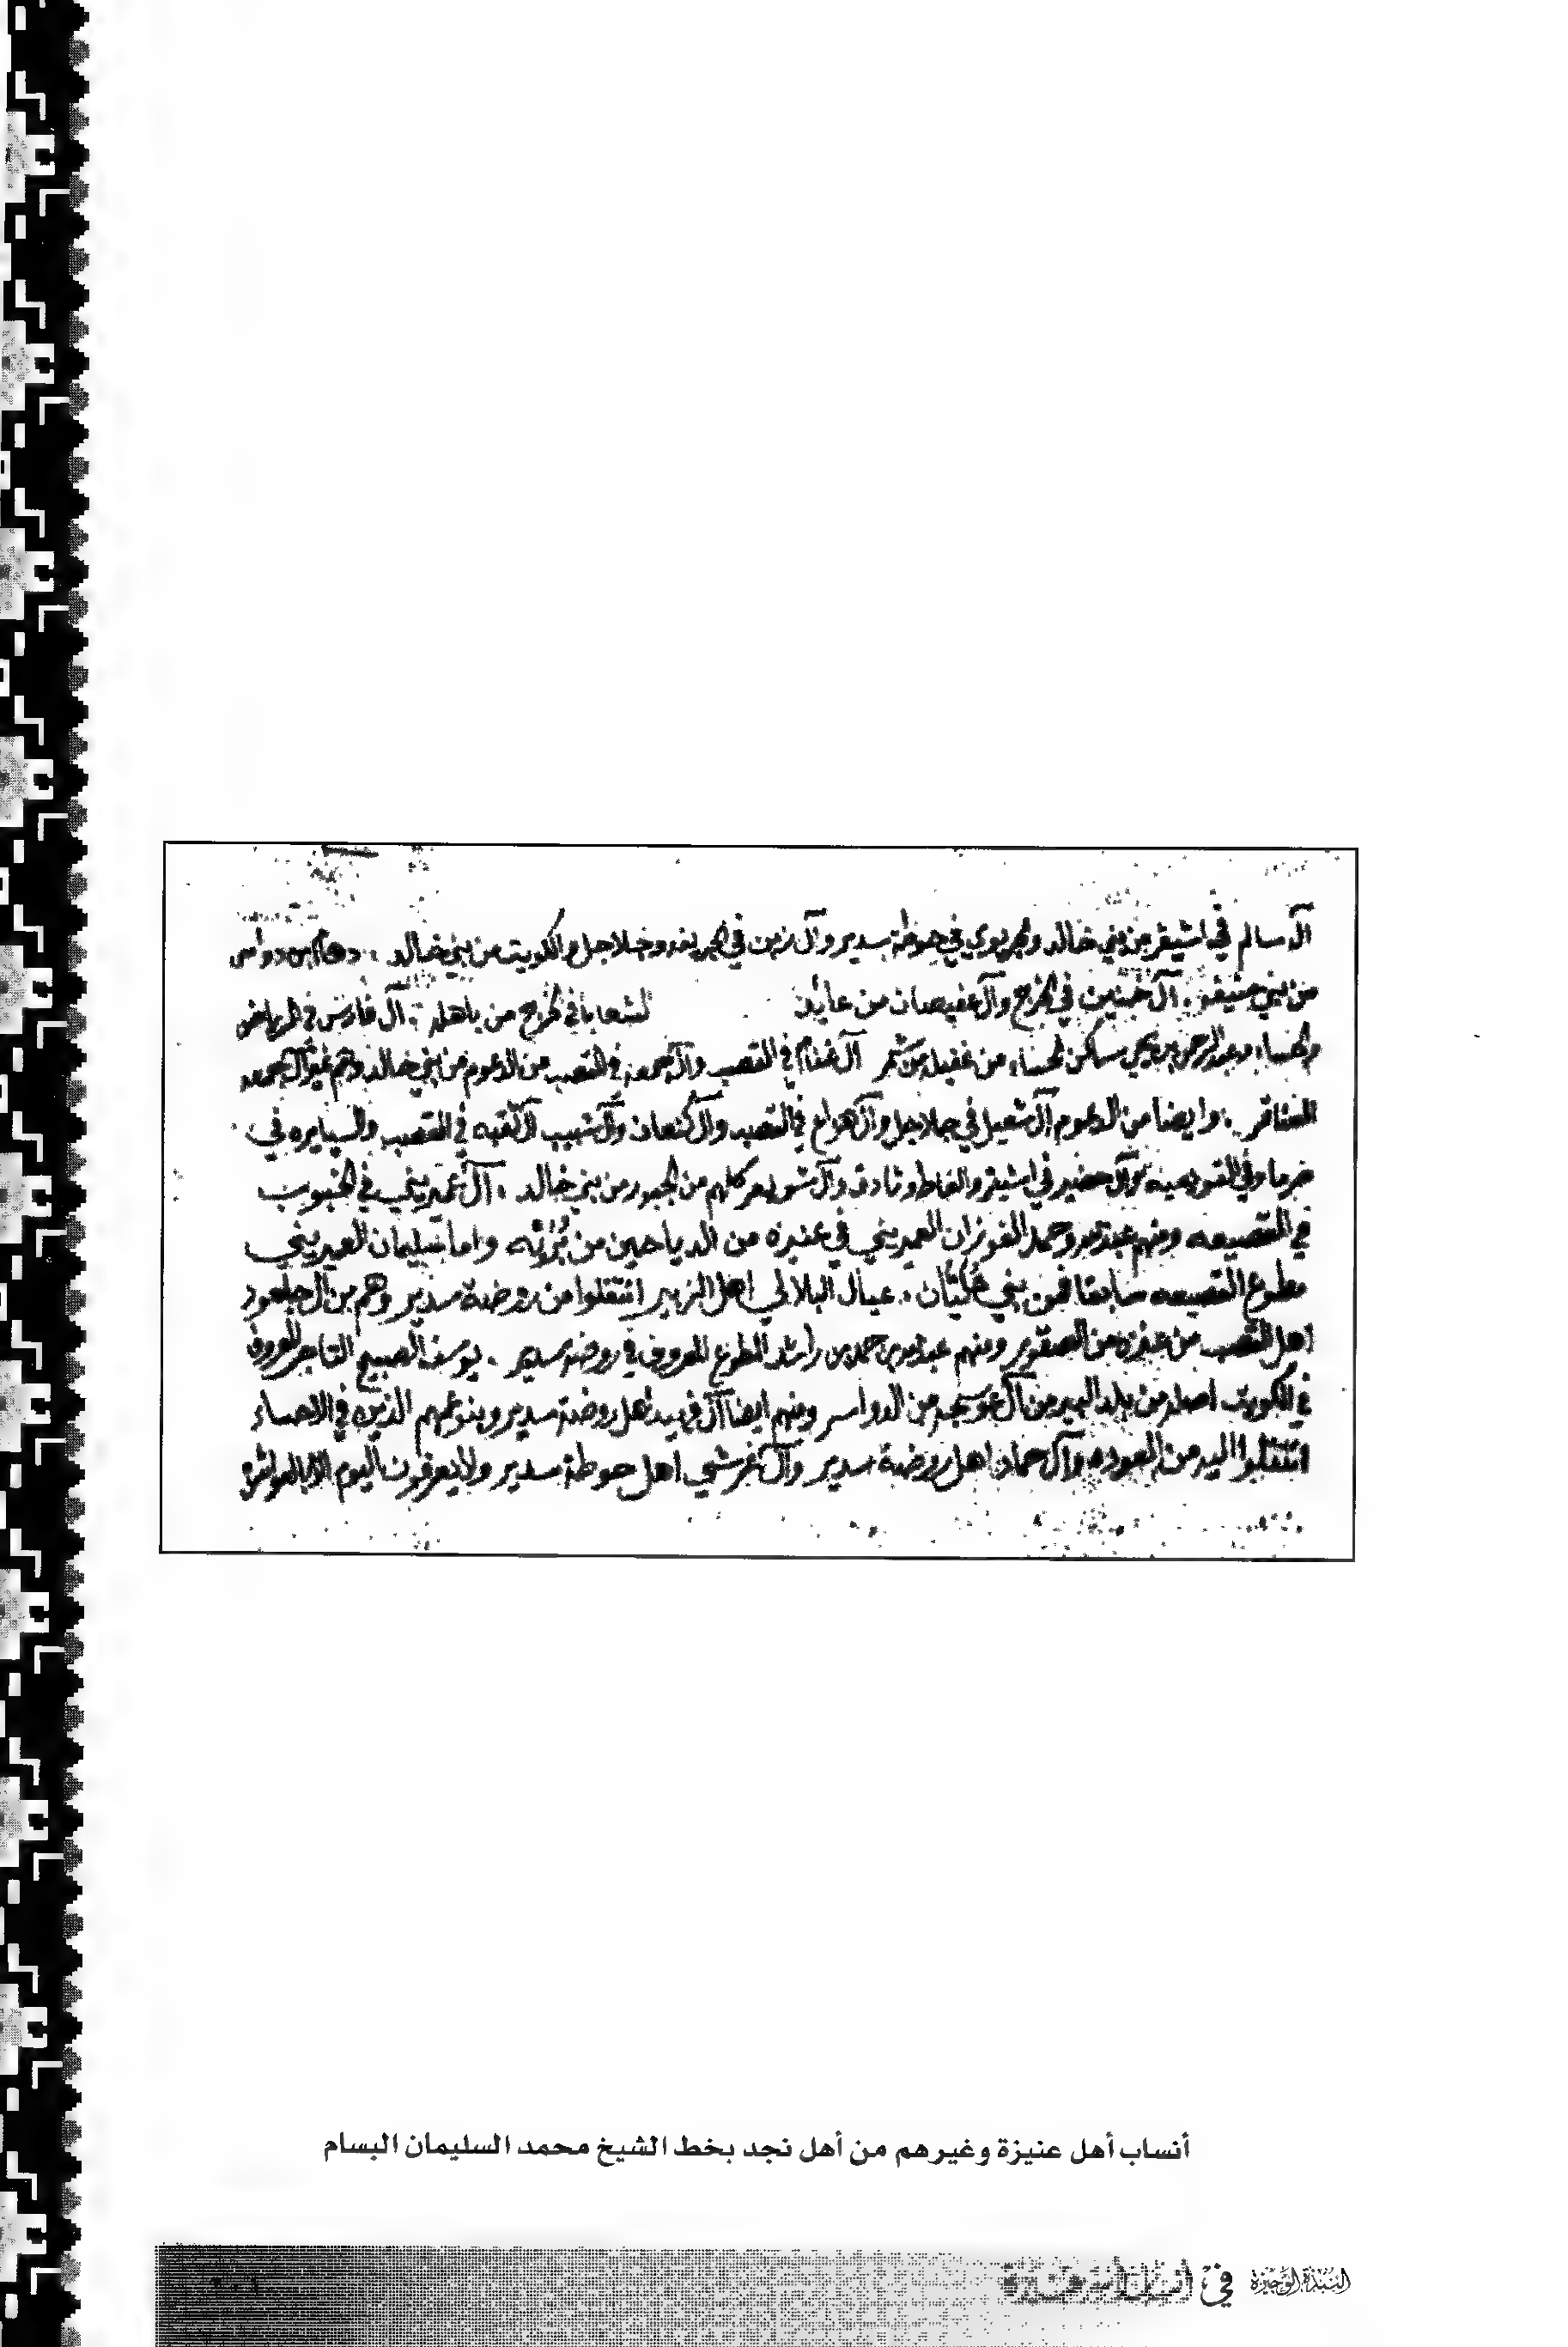 آل سالم في اشيقر من بني خالد و في حوطة سدير وآل زين في وجلاجل والكويت من بني خالد . دهام بن دواس
من بني . آل في الخرج وآل عفيصان من عائذ في الخرج من باهله . آل فارس في الرياض
والحساء وعبد الرحمن بن ساكن الحساء من عقيل من شمر آل غنام في القصب وآل جمعه في القصب من الدعوم من بني خالد وهم غير آل جمعه
العناقر . وايضا من الدعوم آل شعيل في جلاجل وآل في القصب وآل كنعان وآل شبيب في القصب والسيايره في
ضرما وفي القويعيه وآل حضير في اشيقر والغاط وثادق وآل كلهم من الجبور من بني خالد . آل عميريني في الخبوب
في القصيعه ومنهم وحمد الفوزان العميريني في عنيزه من الدياحين من واما سليمان العميريني
مطوع القصيعه سابقا فمن بني . عيال البلالي اهل الزبير انتقلوا من روضة سدير وهم من آل جلعود
اهل القصب من عنزه من الصقور ومنهم عبدالله بن حمد بن راشد المطوع المعروف في روضة سدير . يوسف الصبيح التاجر المعروف
في الكويت اصله من بلد من آل عويمر من الدواسر ومنهم ايضا آل فهيد اهل روضة سدير وبنو عمهم الذين في الاحساء
انتقلوا اليه من العوده وآل حماد اهل روضة سدير وآل اهل حوطة سدير ولا يعرفون اليوم الا
أنساب أهل عنيزة وغيرهم من أهل نجد بخط الشيخ محمد السليمان البسام
النبذة الوجيزة في أنساب أسر عنيزة